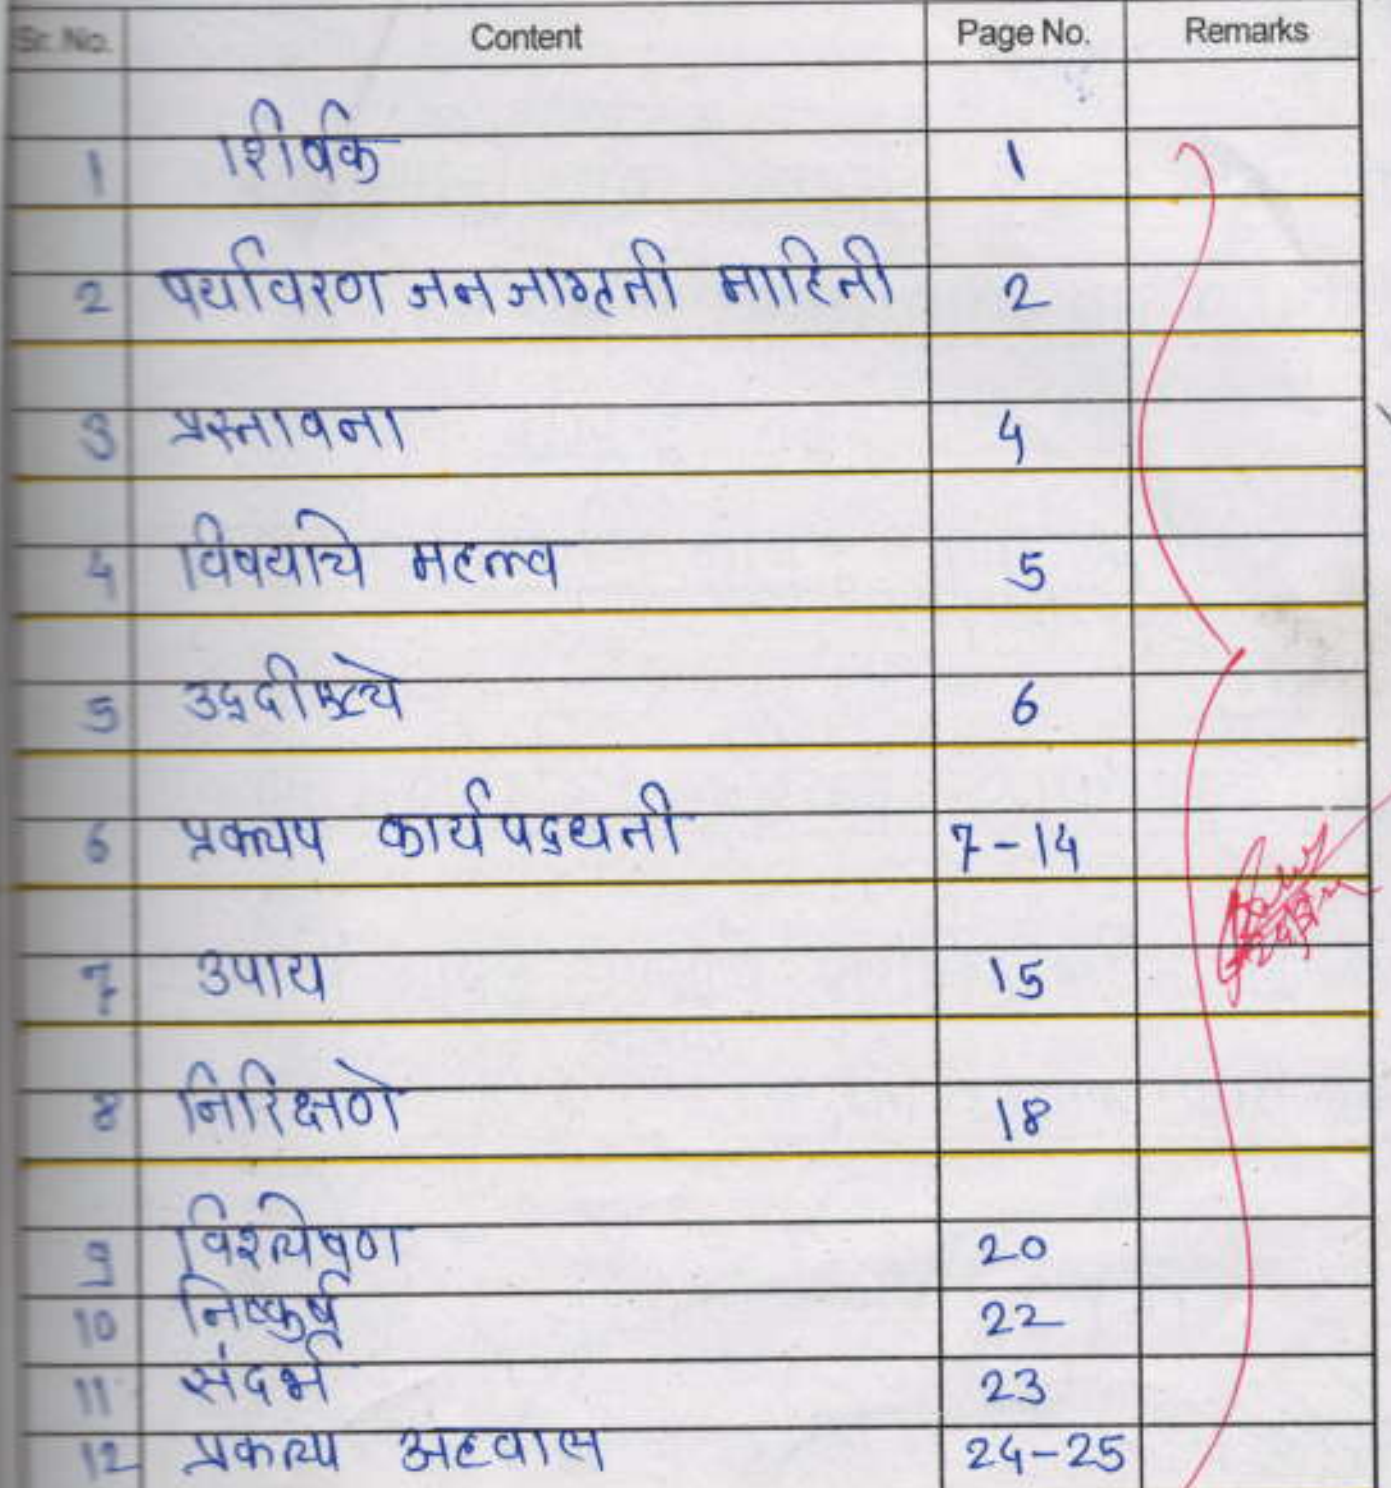 Sr. No. Content Page No. Remarks
1 शिर्षक 1
2 पर्यावरण जनजागृती माहिती 2
3 प्रस्तावना 4
4 विषयाचे महत्त्व 5
5 उद्दीष्ट्ये 6
6 प्रकल्प कार्यपद्धती 7-14
7 उपाय 15
8 निरिक्षणे 18
9 विश्लेषण 20
10 निष्कर्ष 22
11 संदर्भ 23
12 प्रकल्प अहवाल 24-25